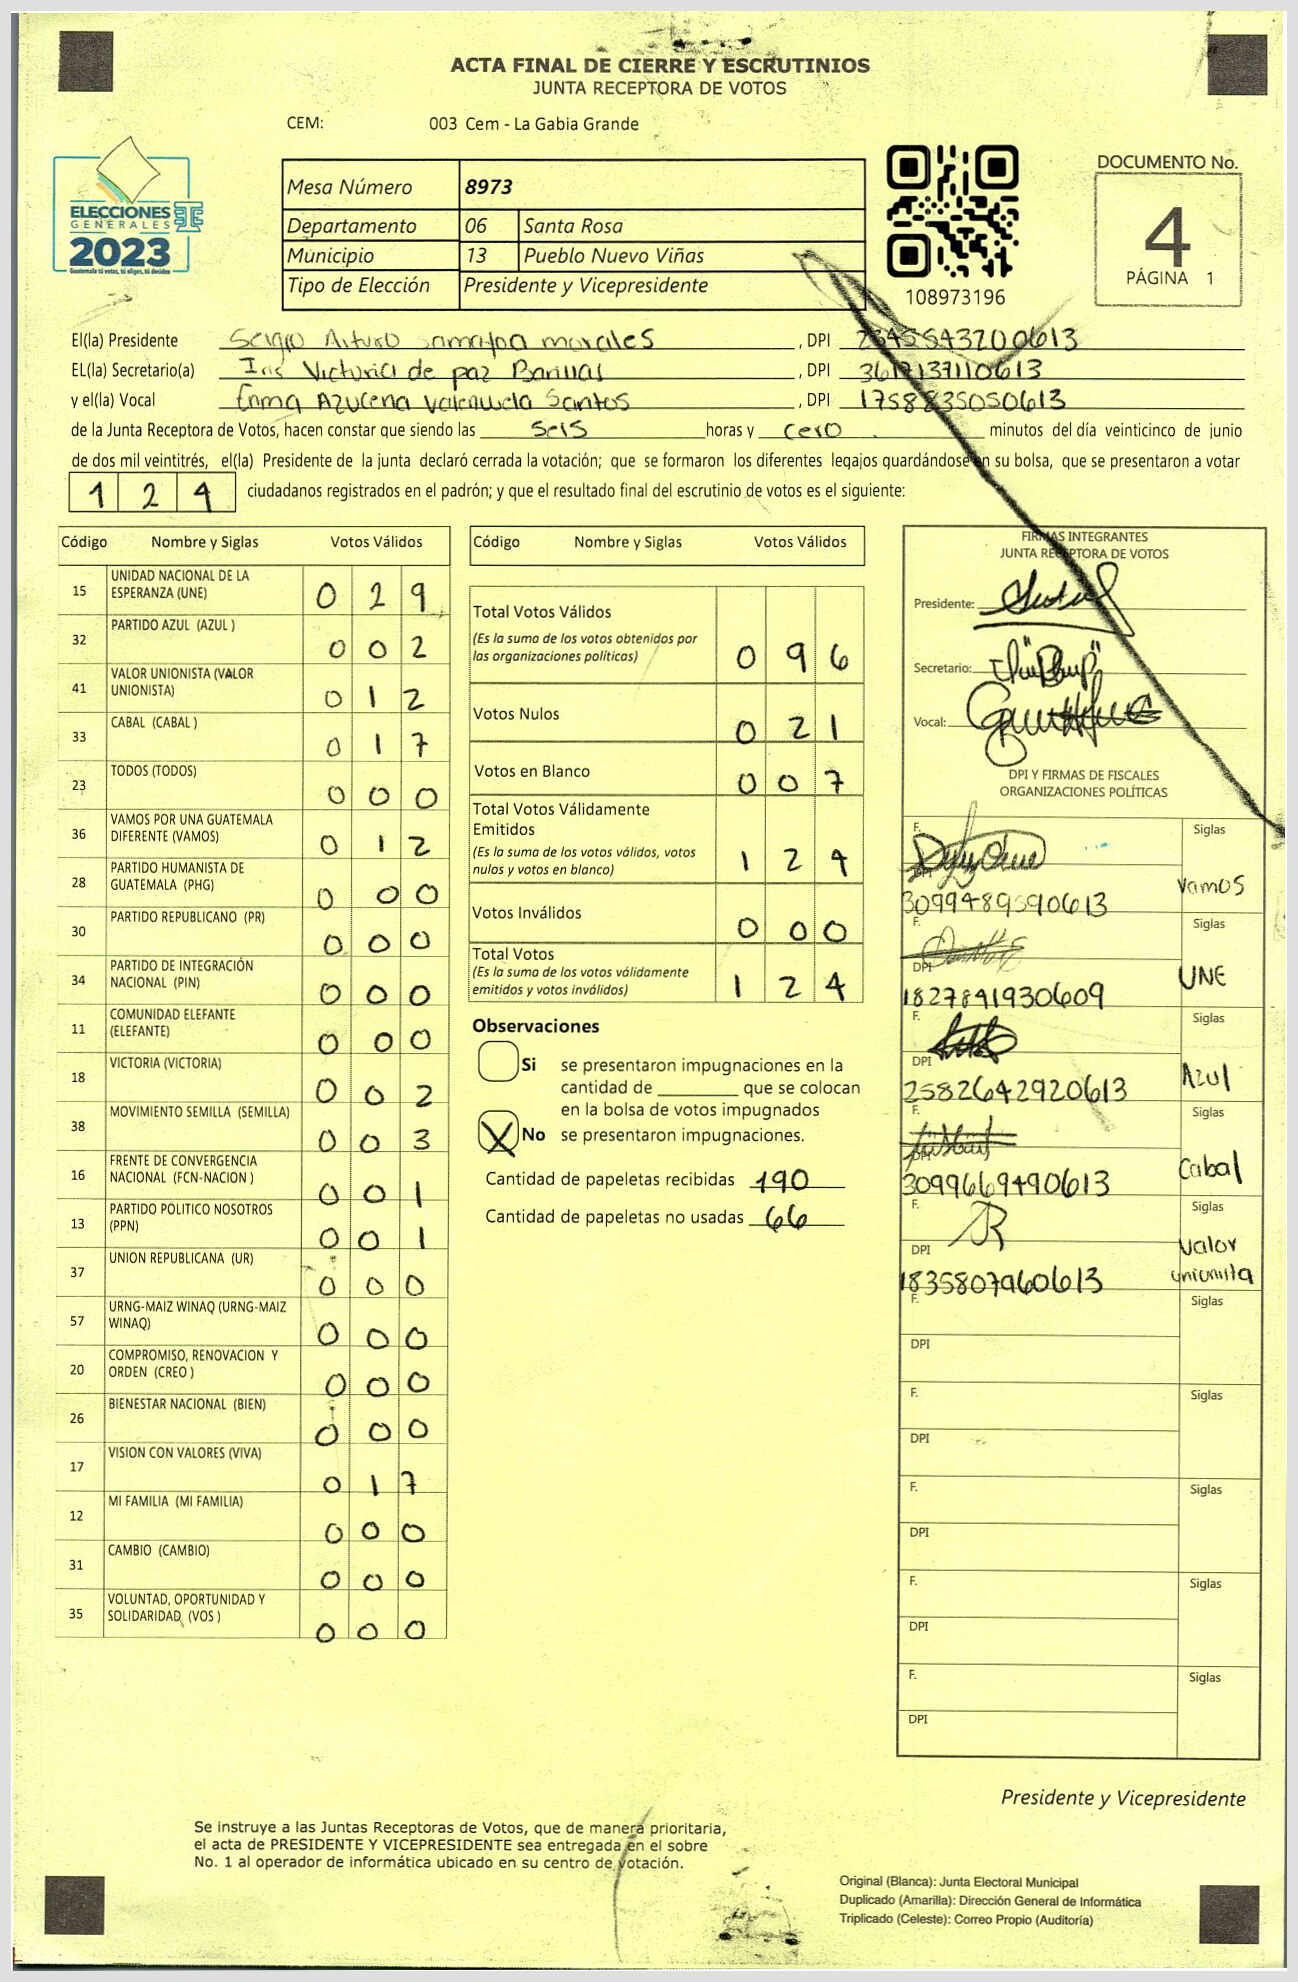 ACTA FINAL DE CIERRE Y ESCRUTINIOS
JUNTA RECEPTORA DE VOTOS
CEM: 003 Cem - La Gabia Grande
ELECCIONES
GENERALES
2023
Guatemala tú votas, tú eliges, tú decides
Mesa Número 8973
Departamento 06 Santa Rosa
Municipio 13 Pueblo Nuevo Viñas
Tipo de Elección Presidente y Vicepresidente
108973196
DOCUMENTO No.
4
PÁGINA 1
El(la) Presidente Sergio Arturo Samayoa morales , DPI 2345543200613
EL(la) Secretario(a) Iris Victoria de paz Barillas , DPI 3617137110613
y el(la) Vocal Enma Azucena Valenzuela Santos , DPI 1758835050613
de la Junta Receptora de Votos, hacen constar que siendo las seis horas y cero minutos del día veinticinco de junio
de dos mil veintitrés, el(la) Presidente de la junta declaró cerrada la votación; que se formaron los diferentes legajos quardándose en su bolsa, que se presentaron a votar
1 2 4 ciudadanos registrados en el padrón; y que el resultado final del escrutinio de votos es el siguiente:
Código Nombre y Siglas Votos Válidos
15 UNIDAD NACIONAL DE LA
ESPERANZA (UNE) 0 2 9
32 PARTIDO AZUL (AZUL ) 0 0 2
41 VALOR UNIONISTA (VALOR
UNIONISTA) 0 1 2
33 CABAL (CABAL ) 0 1 7
23 TODOS (TODOS) 0 0 0
36 VAMOS POR UNA GUATEMALA
DIFERENTE (VAMOS) 0 1 2
28 PARTIDO HUMANISTA DE
GUATEMALA (PHG) 0 0 0
30 PARTIDO REPUBLICANO (PR) 0 0 0
34 PARTIDO DE INTEGRACIÓN
NACIONAL (PIN) 0 0 0
11 COMUNIDAD ELEFANTE
(ELEFANTE) 0 0 0
18 VICTORIA (VICTORIA) 0 0 2
38 MOVIMIENTO SEMILLA (SEMILLA) 0 0 3
16 FRENTE DE CONVERGENCIA
NACIONAL (FCN-NACION ) 0 0 1
13 PARTIDO POLITICO NOSOTROS
(PPN) 0 0 1
37 UNION REPUBLICANA (UR) 0 0 0
57 URNG-MAIZ WINAQ (URNG-MAIZ
WINAQ) 0 0 0
20 COMPROMISO, RENOVACION Y
ORDEN (CREO ) 0 0 0
26 BIENESTAR NACIONAL (BIEN) 0 0 0
17 VISION CON VALORES (VIVA) 0 1 7
12 MI FAMILIA (MI FAMILIA) 0 0 0
31 CAMBIO (CAMBIO) 0 0 0
35 VOLUNTAD, OPORTUNIDAD Y
SOLIDARIDAD, (VOS ) 0 0 0
Código Nombre y Siglas Votos Válidos
Total Votos Válidos
(Es la suma de los votos obtenidos por
las organizaciones políticas) 0 9 6
Votos Nulos 0 2 1
Votos en Blanco 0 0 7
Total Votos Válidamente
Emitidos
(Es la suma de los votos válidos, votos
nulos y votos en blanco) 1 2 4
Votos Inválidos 0 0 0
Total Votos
(Es la suma de los votos válidamente
emitidos y votos inválidos) 1 2 4
Observaciones
Si se presentaron impugnaciones en la
cantidad de ________ que se colocan
en la bolsa de votos impugnados
X No se presentaron impugnaciones.
Cantidad de papeletas recibidas 190
Cantidad de papeletas no usadas 66
FIRMAS INTEGRANTES
JUNTA RECEPTORA DE VOTOS
Presidente:
Secretario:
Vocal:
DPI Y FIRMAS DE FISCALES
ORGANIZACIONES POLÍTICAS
F. Siglas
DPI 3099489590613 Vamos
F. Siglas
DPI 1827841930609 UNE
F. Siglas
DPI 2582642920613 Azul
F. Siglas
DPI 3099669490613 Cabal
F. Siglas
DPI 1835807960613 Valor
unionista
F. Siglas
DPI
F. Siglas
DPI
F. Siglas
DPI
F. Siglas
DPI
F. Siglas
DPI
Presidente y Vicepresidente
Se instruye a las Juntas Receptoras de Votos, que de manera prioritaria,
el acta de PRESIDENTE Y VICEPRESIDENTE sea entregada en el sobre
No. 1 al operador de informática ubicado en su centro de votación.
Original (Blanca): Junta Electoral Municipal
Duplicado (Amarilla): Dirección General de Informática
Triplicado (Celeste): Correo Propio (Auditoría)